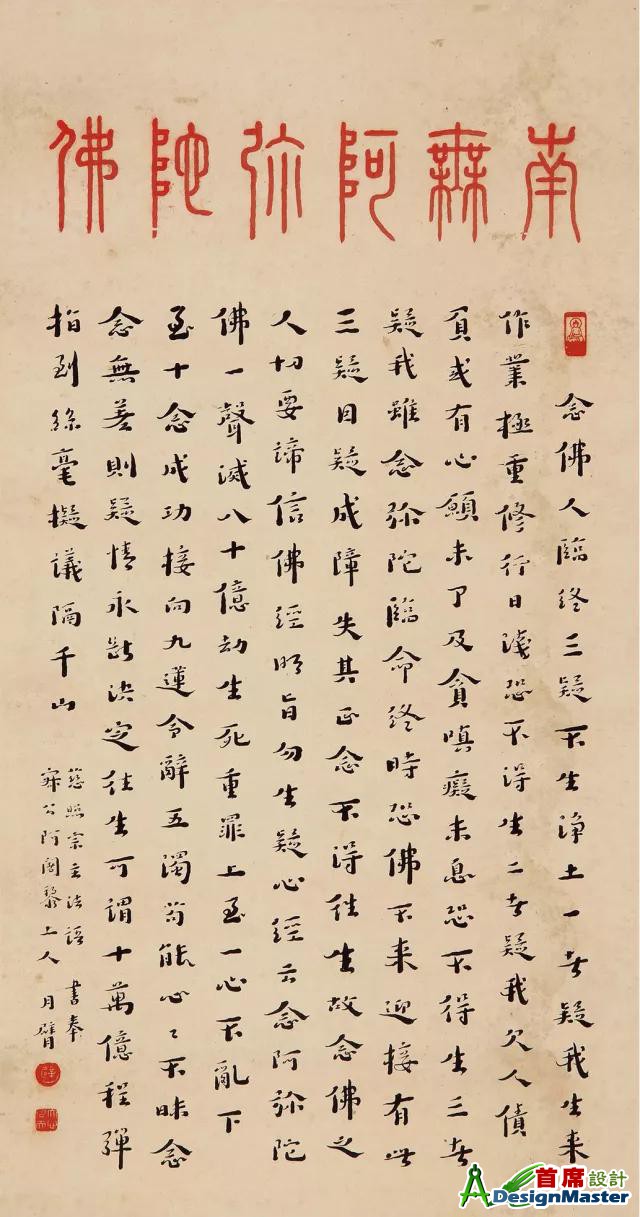 南無阿弥陀佛
念佛人臨終三疑不生淨土一者疑我生来
作業極重修行日淺恐不得生二者疑我欠人債
負或有心願未了及貪嗔癡未息恐不得生三者
疑我雖念弥陀臨命終時恐佛不来迎接有此
三疑因疑成障失其正念不得往生故念佛之
人切要諦信佛經明旨勿生疑心經云念阿弥陀
佛一聲滅八十億劫生死重罪上至一心不亂下
至十念成功接向九蓮令辭五濁苟能心〻不昧念
念無差則疑情永斷決定往生可謂十萬億程彈
指到絲毫擬議隔千山
慈照宗主法語 書奉
寂公阿闍黎上人 月臂
首席設計
DesignMaster